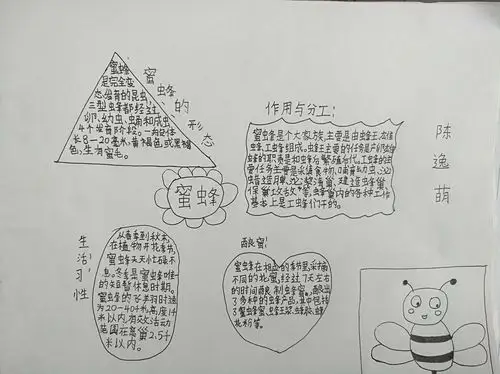 蜜蜂的形态
蜜蜂
是完全变
态发育的昆虫
三型虫蜂都经过
卵、幼虫、蛹和成虫
4个发育阶段。一般体
长8—20毫米,黄褐色,或黑褐
色,生有蜜毛。
作用与分工:
蜜虫是个大家族,主要是由蜂王、雄
蜂,工蜂组成。蜂王主要的任务是产卵,雄
蜂的职责是和蜂后繁殖后代。工蜂的主
要任务主要是采集食物、哺育幼虫、泌
蜡造脾、泌浆清巢、建造虫蜂巢、
保巢攻敌等,蜂巢内的各种工作
基本上是工蜂们干的。
陈逸萌
蜜蜂
生活习性
从春季到秋末,
在植物开花季节,
蜜蜂天天忙碌不
息。冬季是蜜蜂唯一
的短暂休息时期。
蜜蜂的飞翔时速
为20—40千米,高度1千
米以内,有效活动
范围在离巢2.5千
米以内。
酿蜜:
蜜蜂在相应的季节里采摘
不同的花蜜,经过7天左右
的时间酿制虫蜂蜜。酿出
了各种的蜂产品,其中包括
了蜜蜂蜜、蜂王浆、蜂胶、蜂
花粉等。